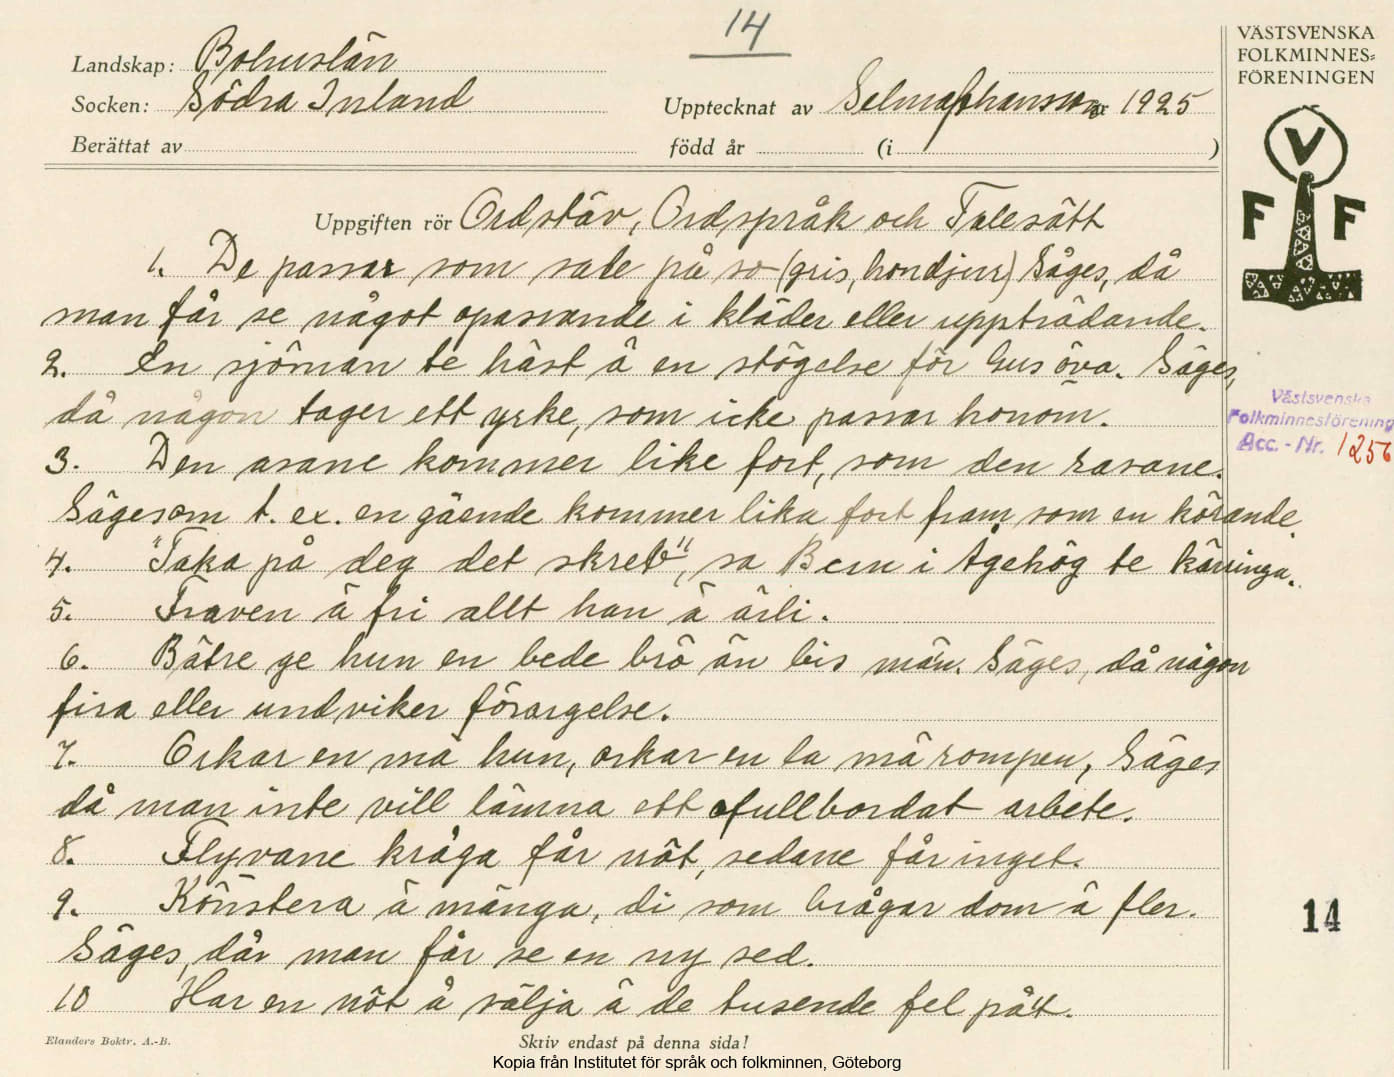 14
VÄSTSVENSKA
FOLKMINNES=
FÖRENINGEN
Landskap: Bohuslän
Socken: Södra Inland
Upptecknat av Selma Johansson år 1925
Berättat av
född år (i )
V
F F
Uppgiften rör Ordstäv, Ordspråk och Talesätt
1. De passar som sale på so (gris, hondjur) Säges, då
man får se något opassande i kläder eller uppträdande.
2. En sjöman te häst å en stögelse för Gus öva. Säges,
då någon tager ett yrke, som icke passar honom.
Västsvenska
Folkminnesförening
Acc. - Nr. 1256
3. Den asane kommer like fort, som den rasane.
Säges om t. ex. en gående kommer lika fort fram som en körande.
4. "Taka på deg det skreb", sa Bern i Ågehög te käringa.
5. Traven ä fri allt han ä ärli.
6. Bätre ge hun en bede brö än bis män. Säges, då någon
fira eller undviker förargelse.
7. Orkar en mä hun, orkar en la mä rompen, Säges
då man inte vill lämna ett ofullbordat arbete.
8. Flyvane kråga får nöt, sedane får inget.
9. Könstera ä mänga, di som brågar dom ä fler.
Säges, dår man får se en ny sed.
14
10 Har en nöt å sälja ä de tusende fel på't.
Elanders Boktr. A.-B.
Skriv endast på denna sida!
Kopia från Institutet för språk och folkminnen, Göteborg